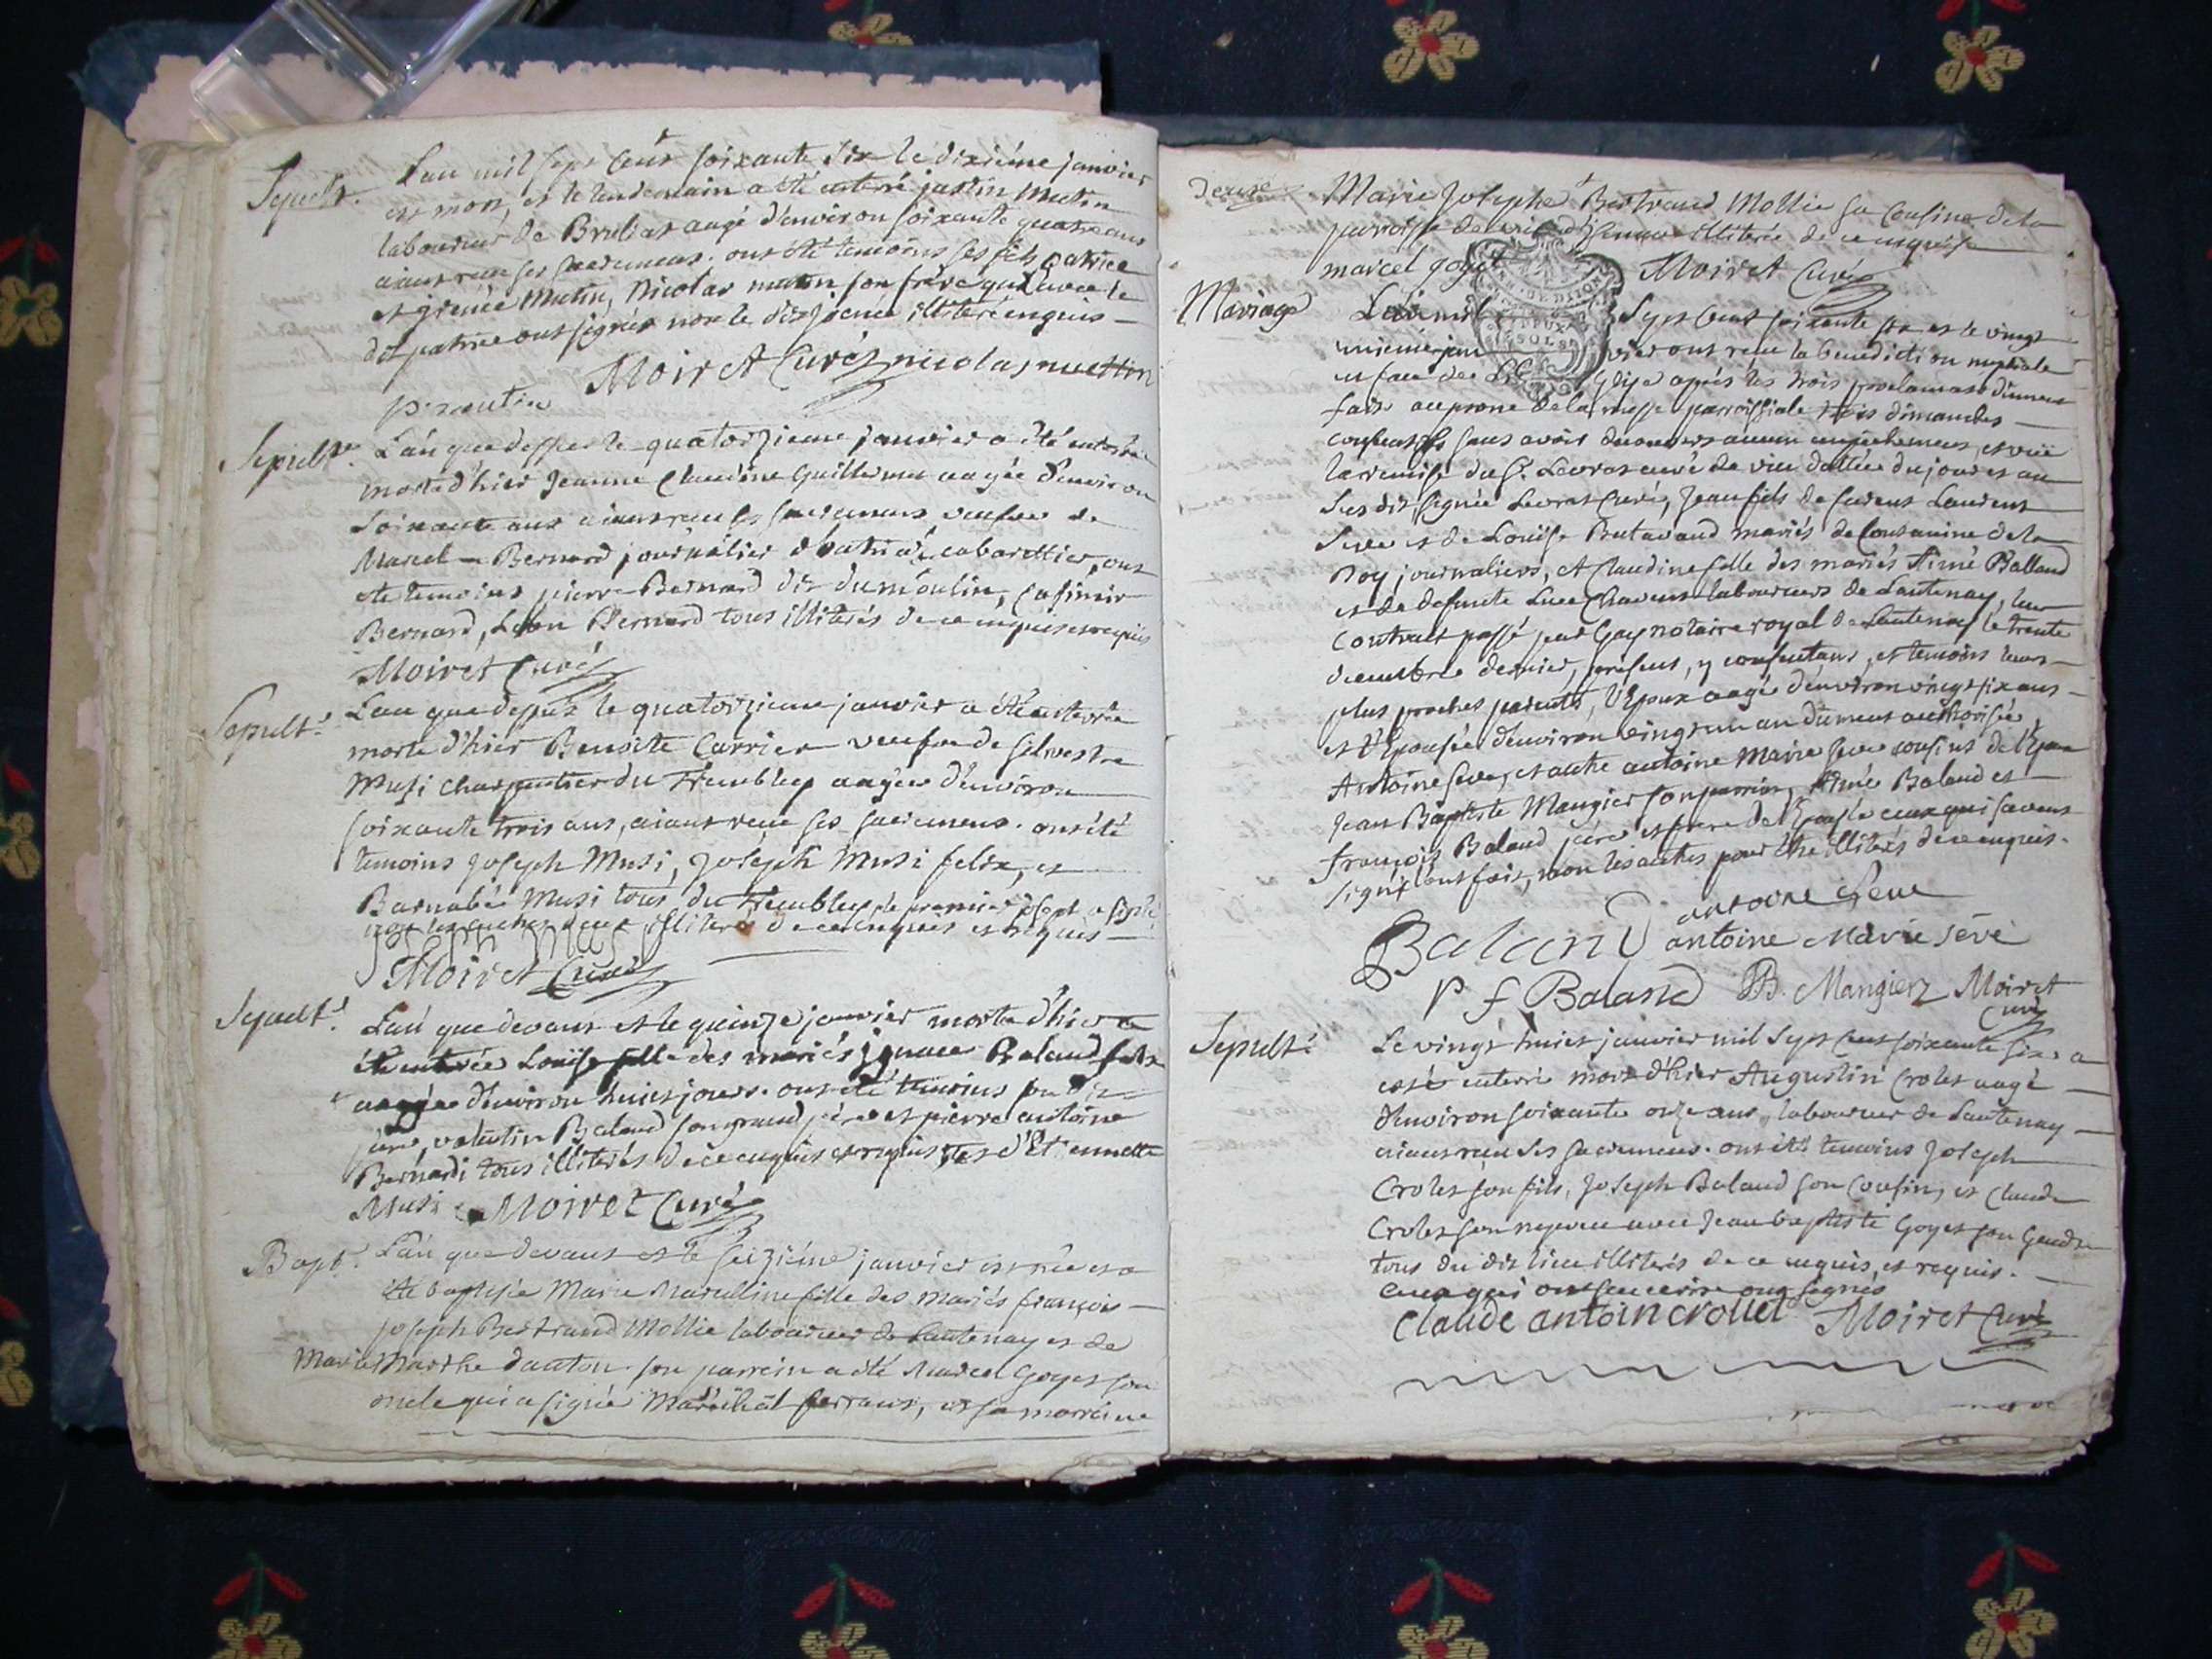 Sepult.e L'an mil sept cent soixante six le dixiéme janvier
est mort, et le lendemain a été enterré justin Mutin
laboureur de Bruliat aagé d'environ soixante quatre ans
aiant reçu ses sacremens. ont été temoins ses fils patrice
et irenée Mutin, Nicolas mutin son frère qui avec le
dit patrice ont signés non le dit jrenée illiteré enquis
Moiret Curé nicolas muttin
p mutin
Sepult.e L'an que dessus le quatorzieme janvier a été enterrée
morte d'hier Jeanne Claudine Guillermet aagée d'environ
soixante ans aiant reçu ses sacremens veufve de
Marcel Bernard journalier cabarettier, ont
été temoins pierre Bernard dit dumoulin, Casimir
Bernard, Léon Bernard tous illiterés de ce enquis et requis
Moiret Curé
Sepult.e L'an que dessus le quatorzieme janvier a été enterrée
morte d'hier Benoite Carrier veufve de silvestre
Musi charpentier du Trembley aagée d'environ
soixante trois ans, aiant reçu ses sacremens. ont été
temoins Joseph Musi, Joseph Musi felix, et
Barnabé Musi tous du Trembley le premier joseph a signé
non les autres deux illiterés de ce enquis et requis
joseph musi
Moiret Curé
Sepult.e L'an que devant et le quinze janvier morte d'hier a
été enterrée Louïse fille des mariés jgnace Baland felix
aagée d'environ huict jours. ont été temoins son dit
père, valentin Baland son grand père et pierre antoine
Bernardi tous illiterés de ce enquis et requis, et d'Etiennette
Musi Moiret Curé
Bapt.e L'an que devant et le seiziéme janvier est née et a
été baptisée Marie Marcelline fille des mariés françois
joseph Bertrand Mollie laboureur de Lantenay et de
Marie Marthe danton. son parrein a été Marcel Goyet son
oncle qui a signé Maréchal ferrant, et sa marreine
Marie Josephe Bertrand Mollie sa Cousine de la
parroisse de illiterée de ce enquise
marcel goyet Moiret Curé
Mariage L'an mil sept cent soixante six et le vingt
unieme janvier ont reçu la benediction nuptiale
en face de l'Eglise après les trois proclamas dûment
fait au prone de la messe parroissiale trois dimanches
consecutifs sans avoir decouvert aucun empechement, et vüe
la remise du S.r Levrat curé de vieu dattée du jour et an
susdit signée Levrat Curé, Jean fils de furent Laurent
Seve et de Louïse Butavand mariés de
Roy journaliers, et Claudine fille des mariés Aimé Balland
et de defunte Luce Chavent laboureurs de Lantenay, leur
contract passé par Gay notaire royal de Lantenay le trente
decembre dernier, présens, y consentans, et temoins leurs
plus proches parents, l'Epoux aagé d'environ vingt six ans
et l'Epousée d'environ vingt un an dûment authorisée,
Antoine Seve, et autre antoine Marie Seve cousins de l'Epoux
Jean Baptiste Mangier son parrein, Aimé Baland et
françois Baland père et frere de l'Epousée ceux qui savent
signer l'ont fait, non les autres pour être illiterés de ce enquis.
Baland antoine seve
antoine Marie Sêve
P f Baland JB. Mangier Moiret
Curé
Sepult.e Le vingt huict janvier mil sept cent soixante six a
esté enterré mort d'hier Augustin Crolet aagé
d'environ soixante onze ans, laboureur de Lantenay
aiant reçu ses sacremens. ont été temoins Joseph
Crolet son fils, Joseph Baland son cousin, et Claude
Crolet son nepveu avec Jean baptiste Goyet son gendre
tous du dit lieu illiterés de ce enquis, et requis.
Ceux qui ont sçu ecrire ont signés
Claude antoin crollet Moiret Curé